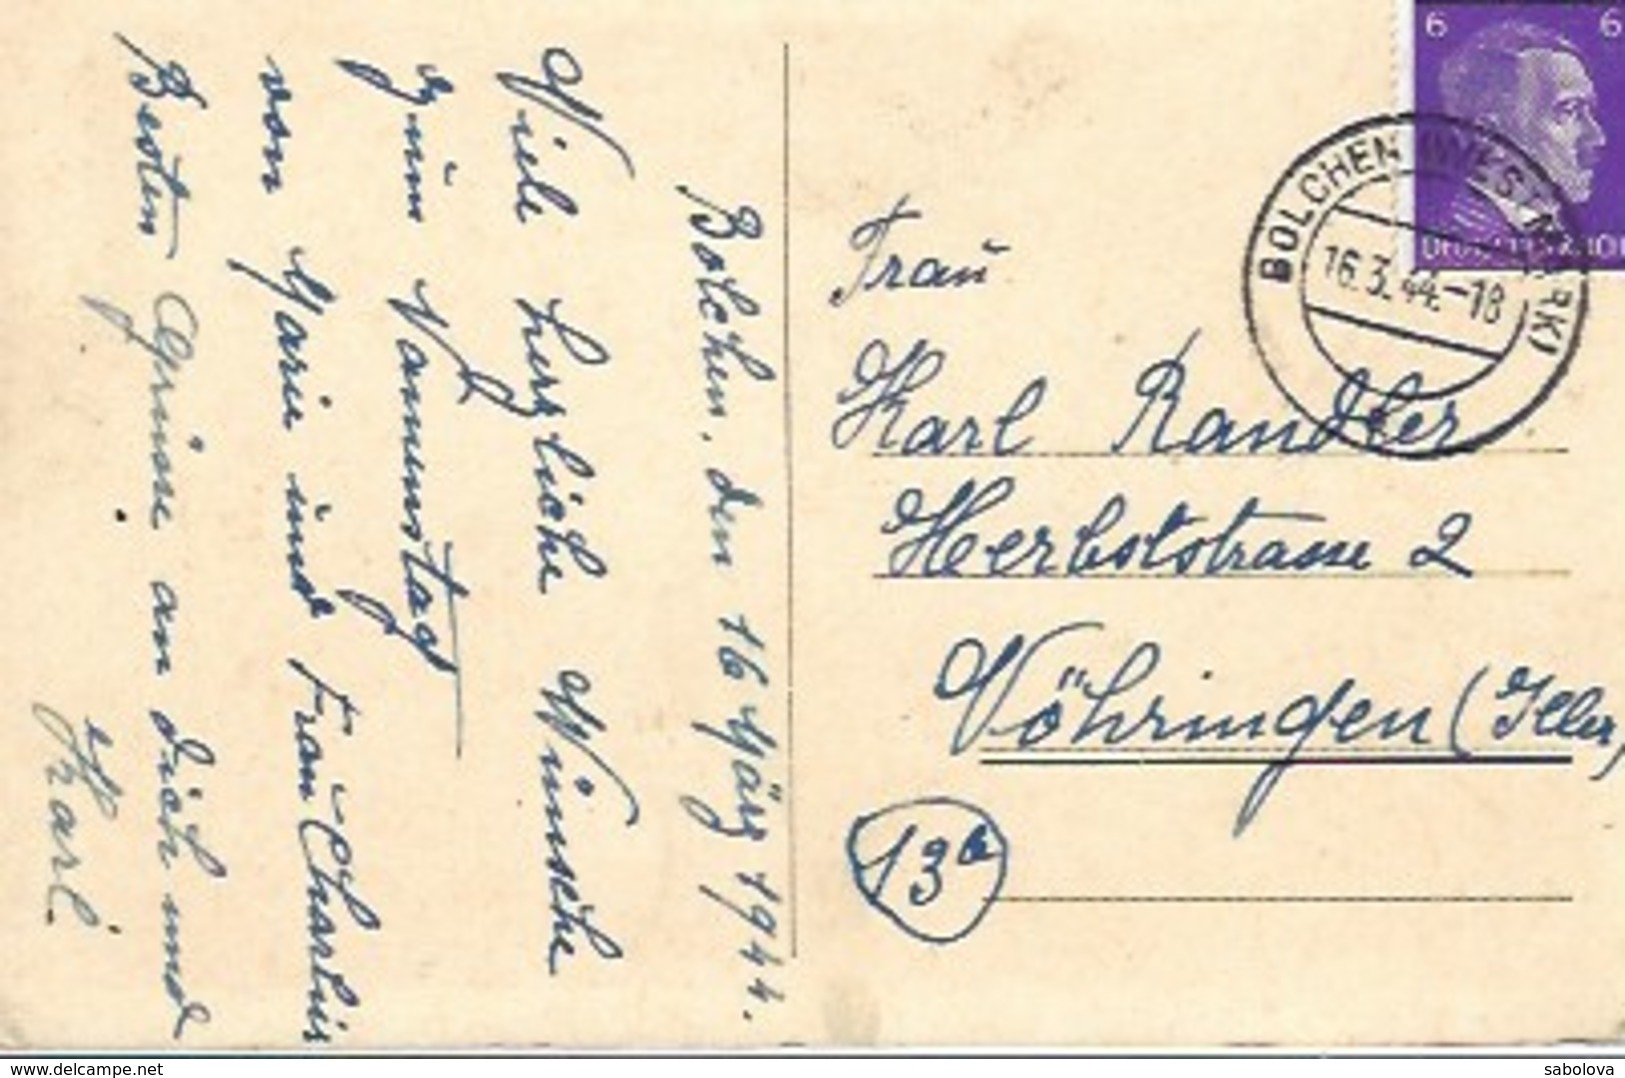 Bolchen, den 16 März 1944.
Viele herzliche Wünsche
zum Namenstag
von Marie und Frau Charlis
Besten Grüsse an dich und
Karl.
6 6
BOLCHEN (WESTMARK)
16.3.44.-18
Frau
Karl Randler
Herbststrasse 2
Vöhringen (Iller)
13b
www.delcampe.net
sabolova